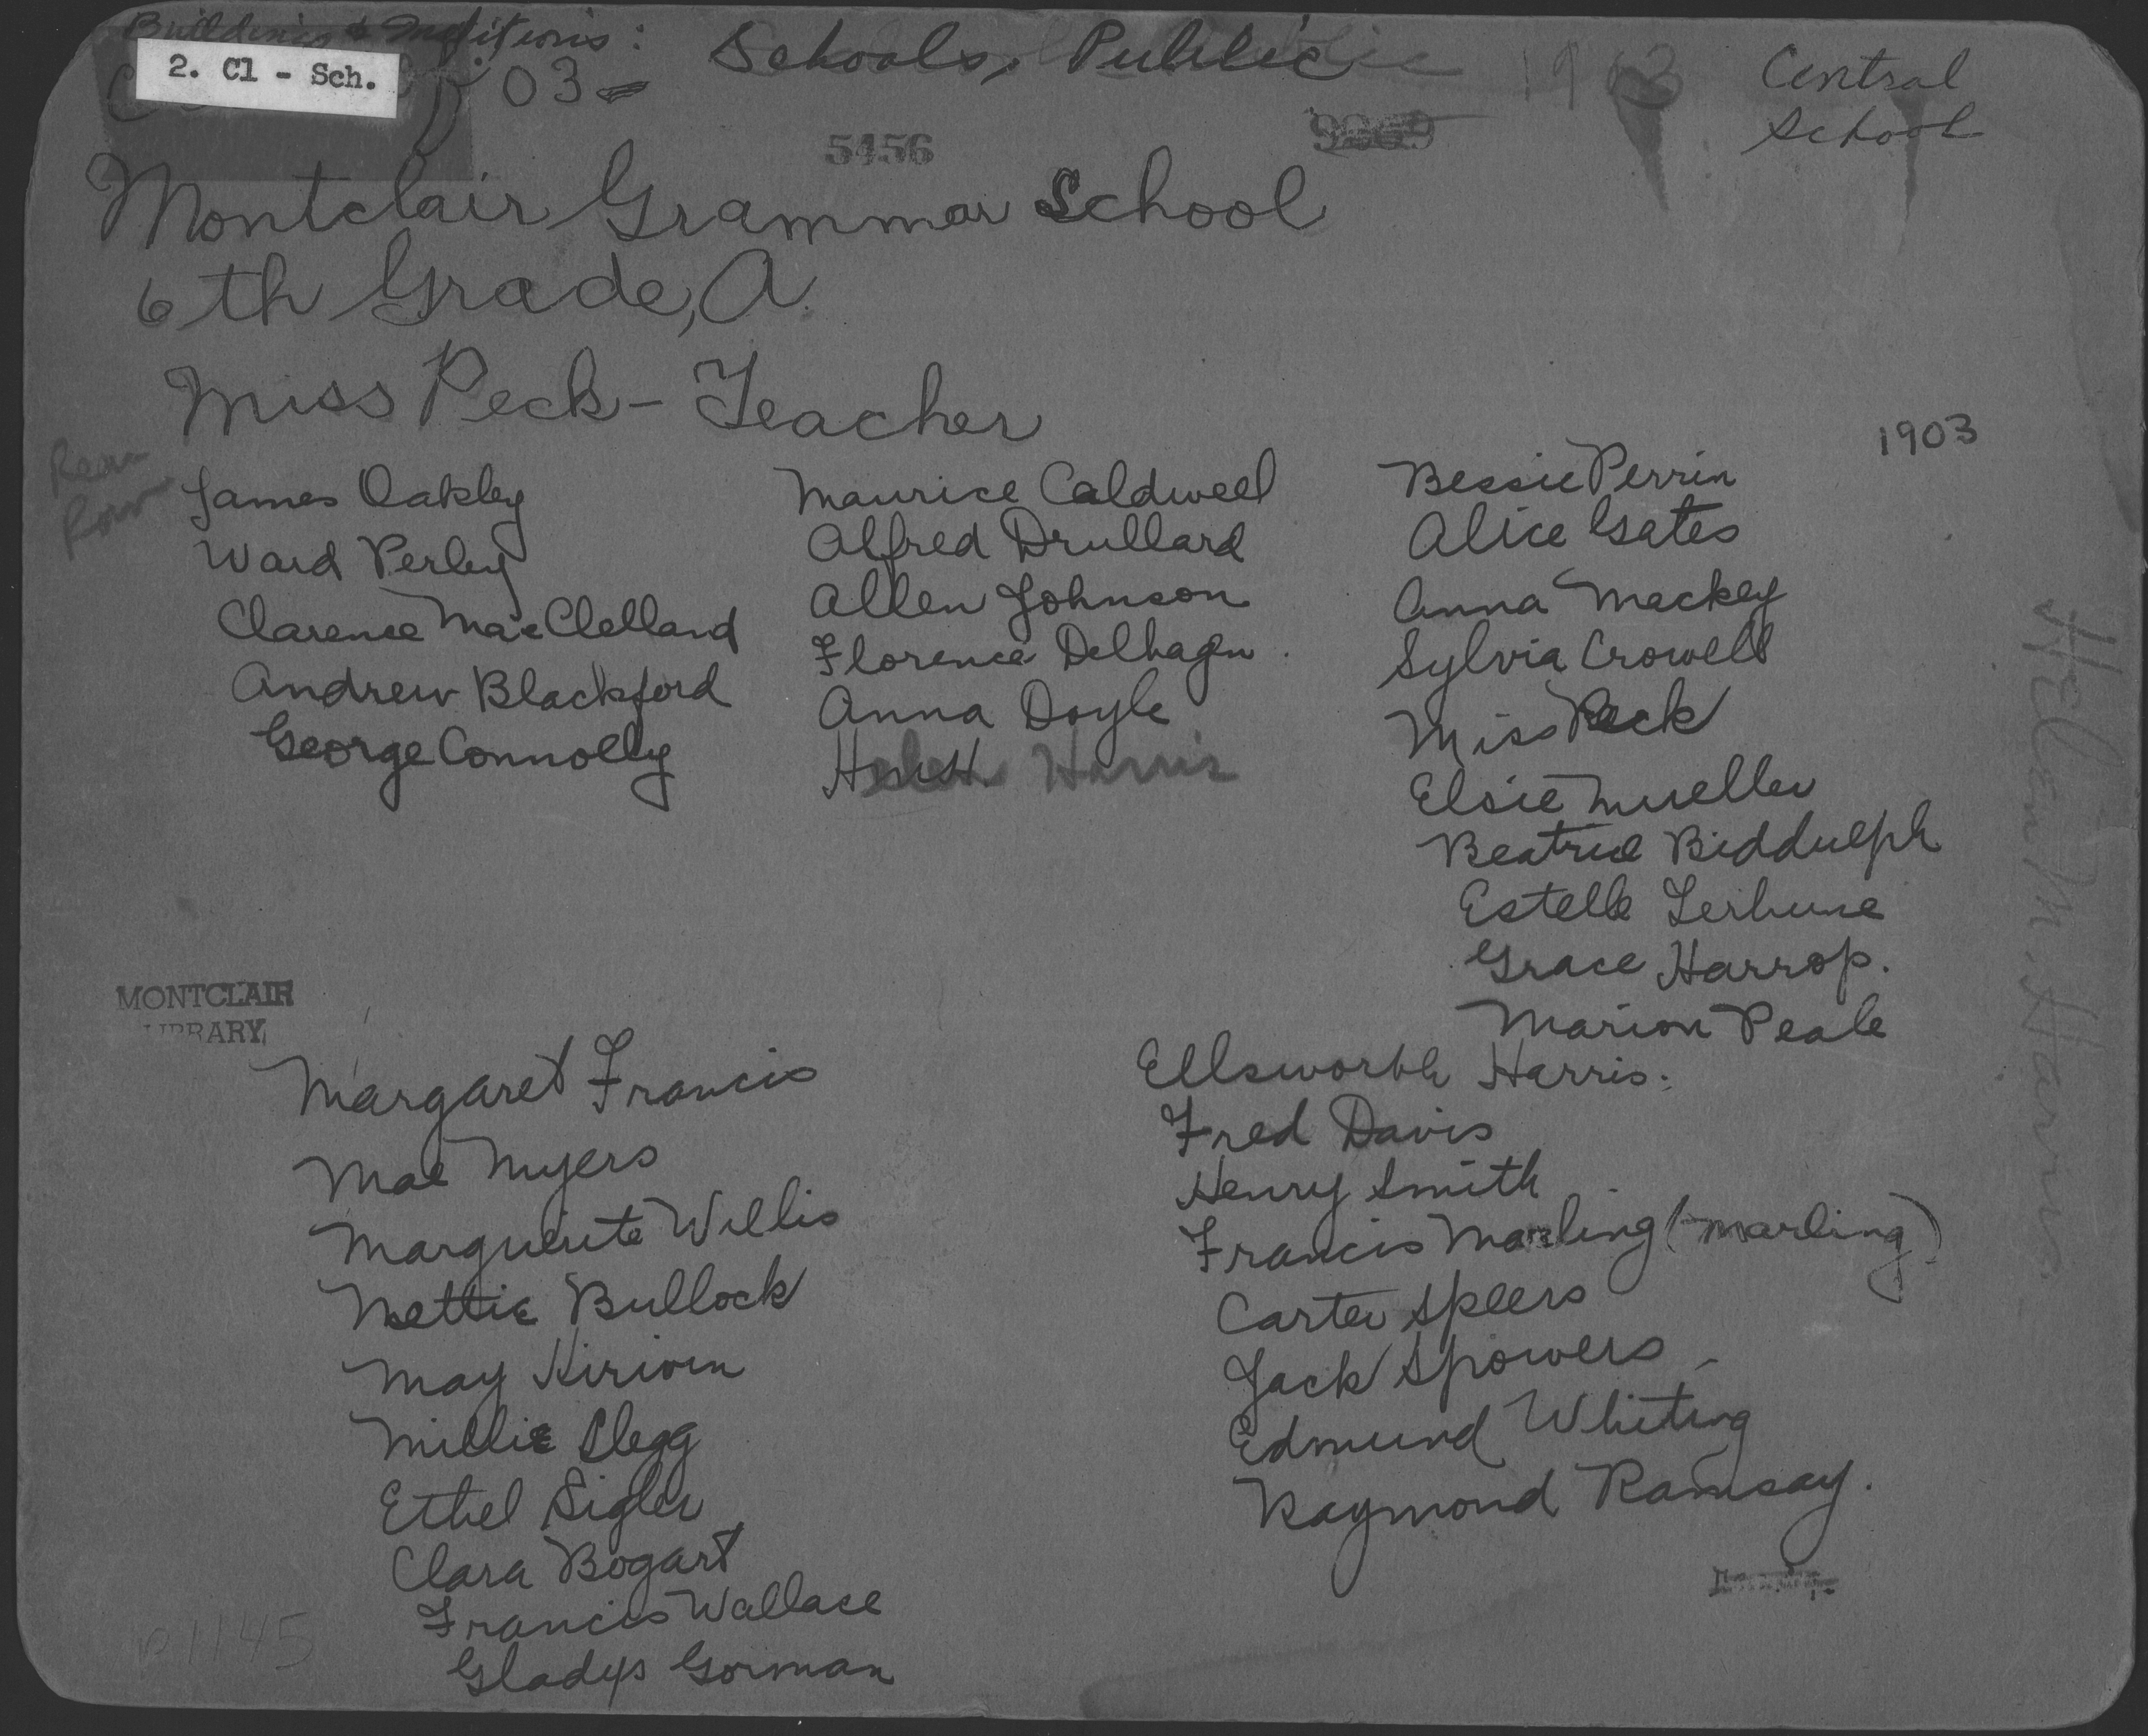 Buildings & Institutions: Schools, Public
2. Cl - Sch.
03-
Central
School
5456
Montclair Grammar School
6th Grade, A.
Miss Peck - Teacher
1903
Rear
Row
James Oakley
Ward Perley
Clarence MacClelland
Andrew Blackford
George Connolly
Maurice Caldwell
Alfred Drullard
Allen Johnson
Florence Delhagen
Anna Doyle
Helen Harris
Bessie Perrin
Alice Gates
Anna Mackey
Sylvia Crowell
Miss Peck
Elsie Mueller
Beatrice Biddulph
Estelle Terhune
Grace Harrop.
Marion Peale
Helen M. Harris
MONTCLAIR
LIBRARY
Margaret Francis
Mae Myers
Marguerite Willis
Nettie Bullock
May Kirwin
Millie Clegg
Ethel Sigler
Clara Bogart
Francis Wallace
Gladys Gorman
Ellsworth Harris.
Fred Davis
Henry Smith
Francis Marling (Marling)
Carter Speers
Jack Spowers
Edmund Whiting
Raymond Ramsay.
1145